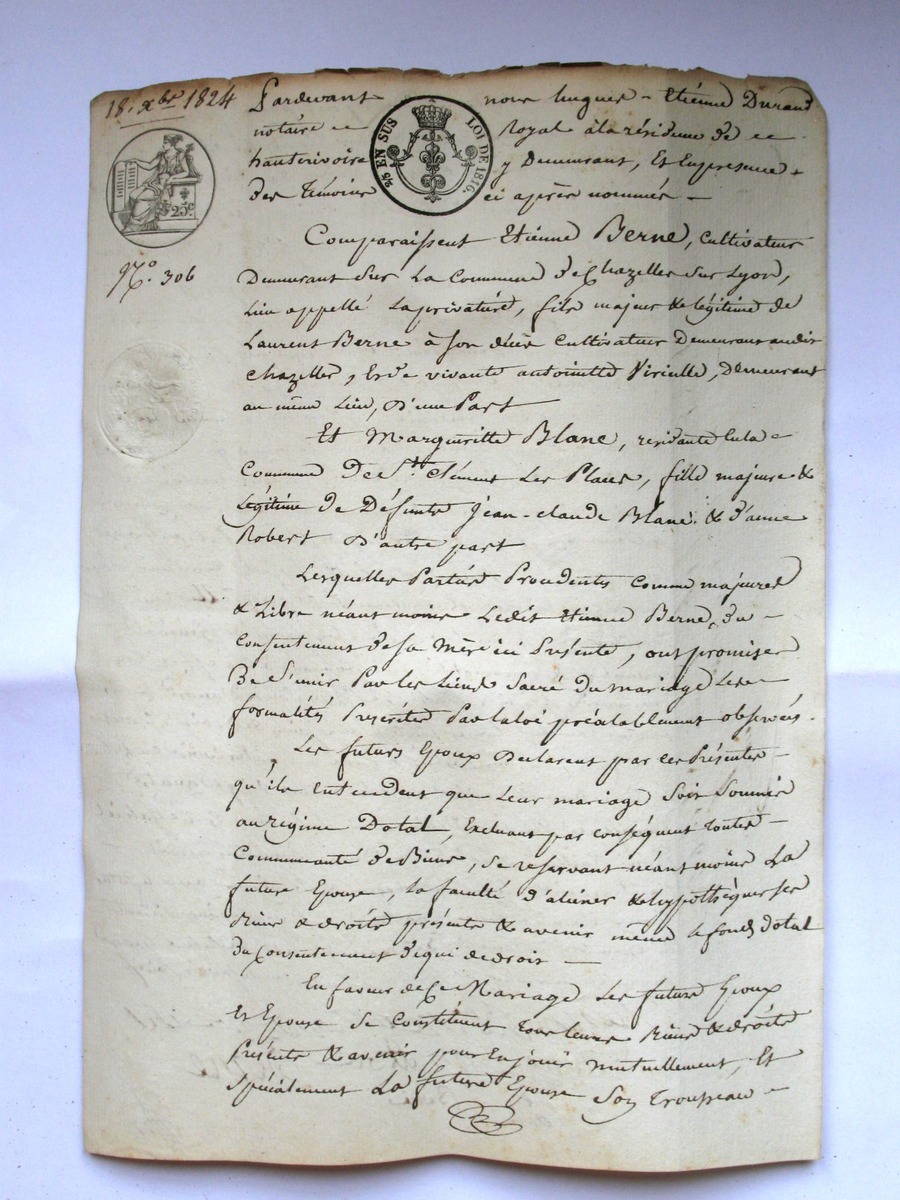 18. xbre 1824
Pardevant nous hugues - Etiénne Durand
notaire Royal à la résidence de
hauterivoire y Demeurant, Et En presence
des Témoins ci après nommés -
2/5 EN SUS LOI DE 1816.
25c
No. 306
Comparaissent Etiénne Berne, Cultivateur
Demeurant Sur La Commune de Chazelles Sur Lyon,
Lieu appellé Laprivature, fils majeur & légitime de
Laurent Berne à son décès Cultivateur Demeurant audit
Chazelles, Et de vivante antoinette Virielle, Demeurant
au même Lieu, D'une Part
Et Margueritte Blanc, residante Enla
Commune De St. Clément Les Places, fille majeure &
Légitime de Défunts Jean-claude Blanc & d'anne
Robert D'autre part
Lesquelles Parties Procedentes Comme majeures
& Libre néantmoins Ledit Etienne Berne, du
Consentement de sa Mère ici Présente, ont promis
De S'unir Par les Liens Sacré Du mariage Les
formalités Prescrites Par la loi préalablement observées.
Les futurs Epoux Déclarent par ces Présentes
qu'ils Entendent que Leur mariage Soit Soumis
au régime Dotal, Excluant par conséquent toutes
Communauté de Biens, Se reservant néantmoins La
future Epouse, la faculté d'aliéner & hypothèquer ses
Biens & droits présents & avenir même le fonds Dotal
du Consentement de qui de droit -
En faveur de Ce Mariage Les futurs Epoux
Et Epouse Se Constituent tous leurs Biens & droits
Présents & avenir pour En jouir mutuellement, Et
Spécialement La future Epouse Son Trousseau -